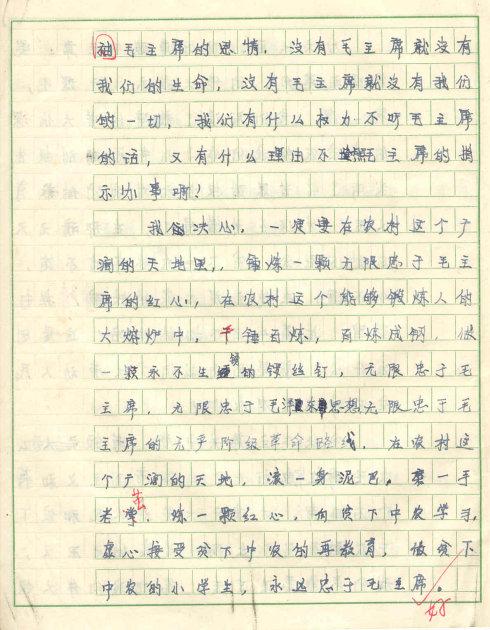 袖毛主席的恩情，没有毛主席就没有
我们的生命，没有毛主席就没有我们
的一切，我们有什么权力不听毛主席
的话，又有什么理由不按照毛主席的指
示办事呀！
我们决心，一定要在农村这个广
阔的天地里，锤炼一颗无限忠于毛主
席的红心，在农村这个能够锻炼人的
大熔炉中，千锤百炼，百炼成钢，做
一颗永不生锈的锣丝钉，无限忠于毛
主席，无限忠于毛泽东思想无限忠于毛
主席的无产阶级革命路线，在农村这
个广阔的天地，滚一身泥巴。磨一手
老掌，炼一颗红心，向贫下中农学习，
虚心接受贫下中农的再教育，做贫下
中农的小学生，永远忠于毛主席。